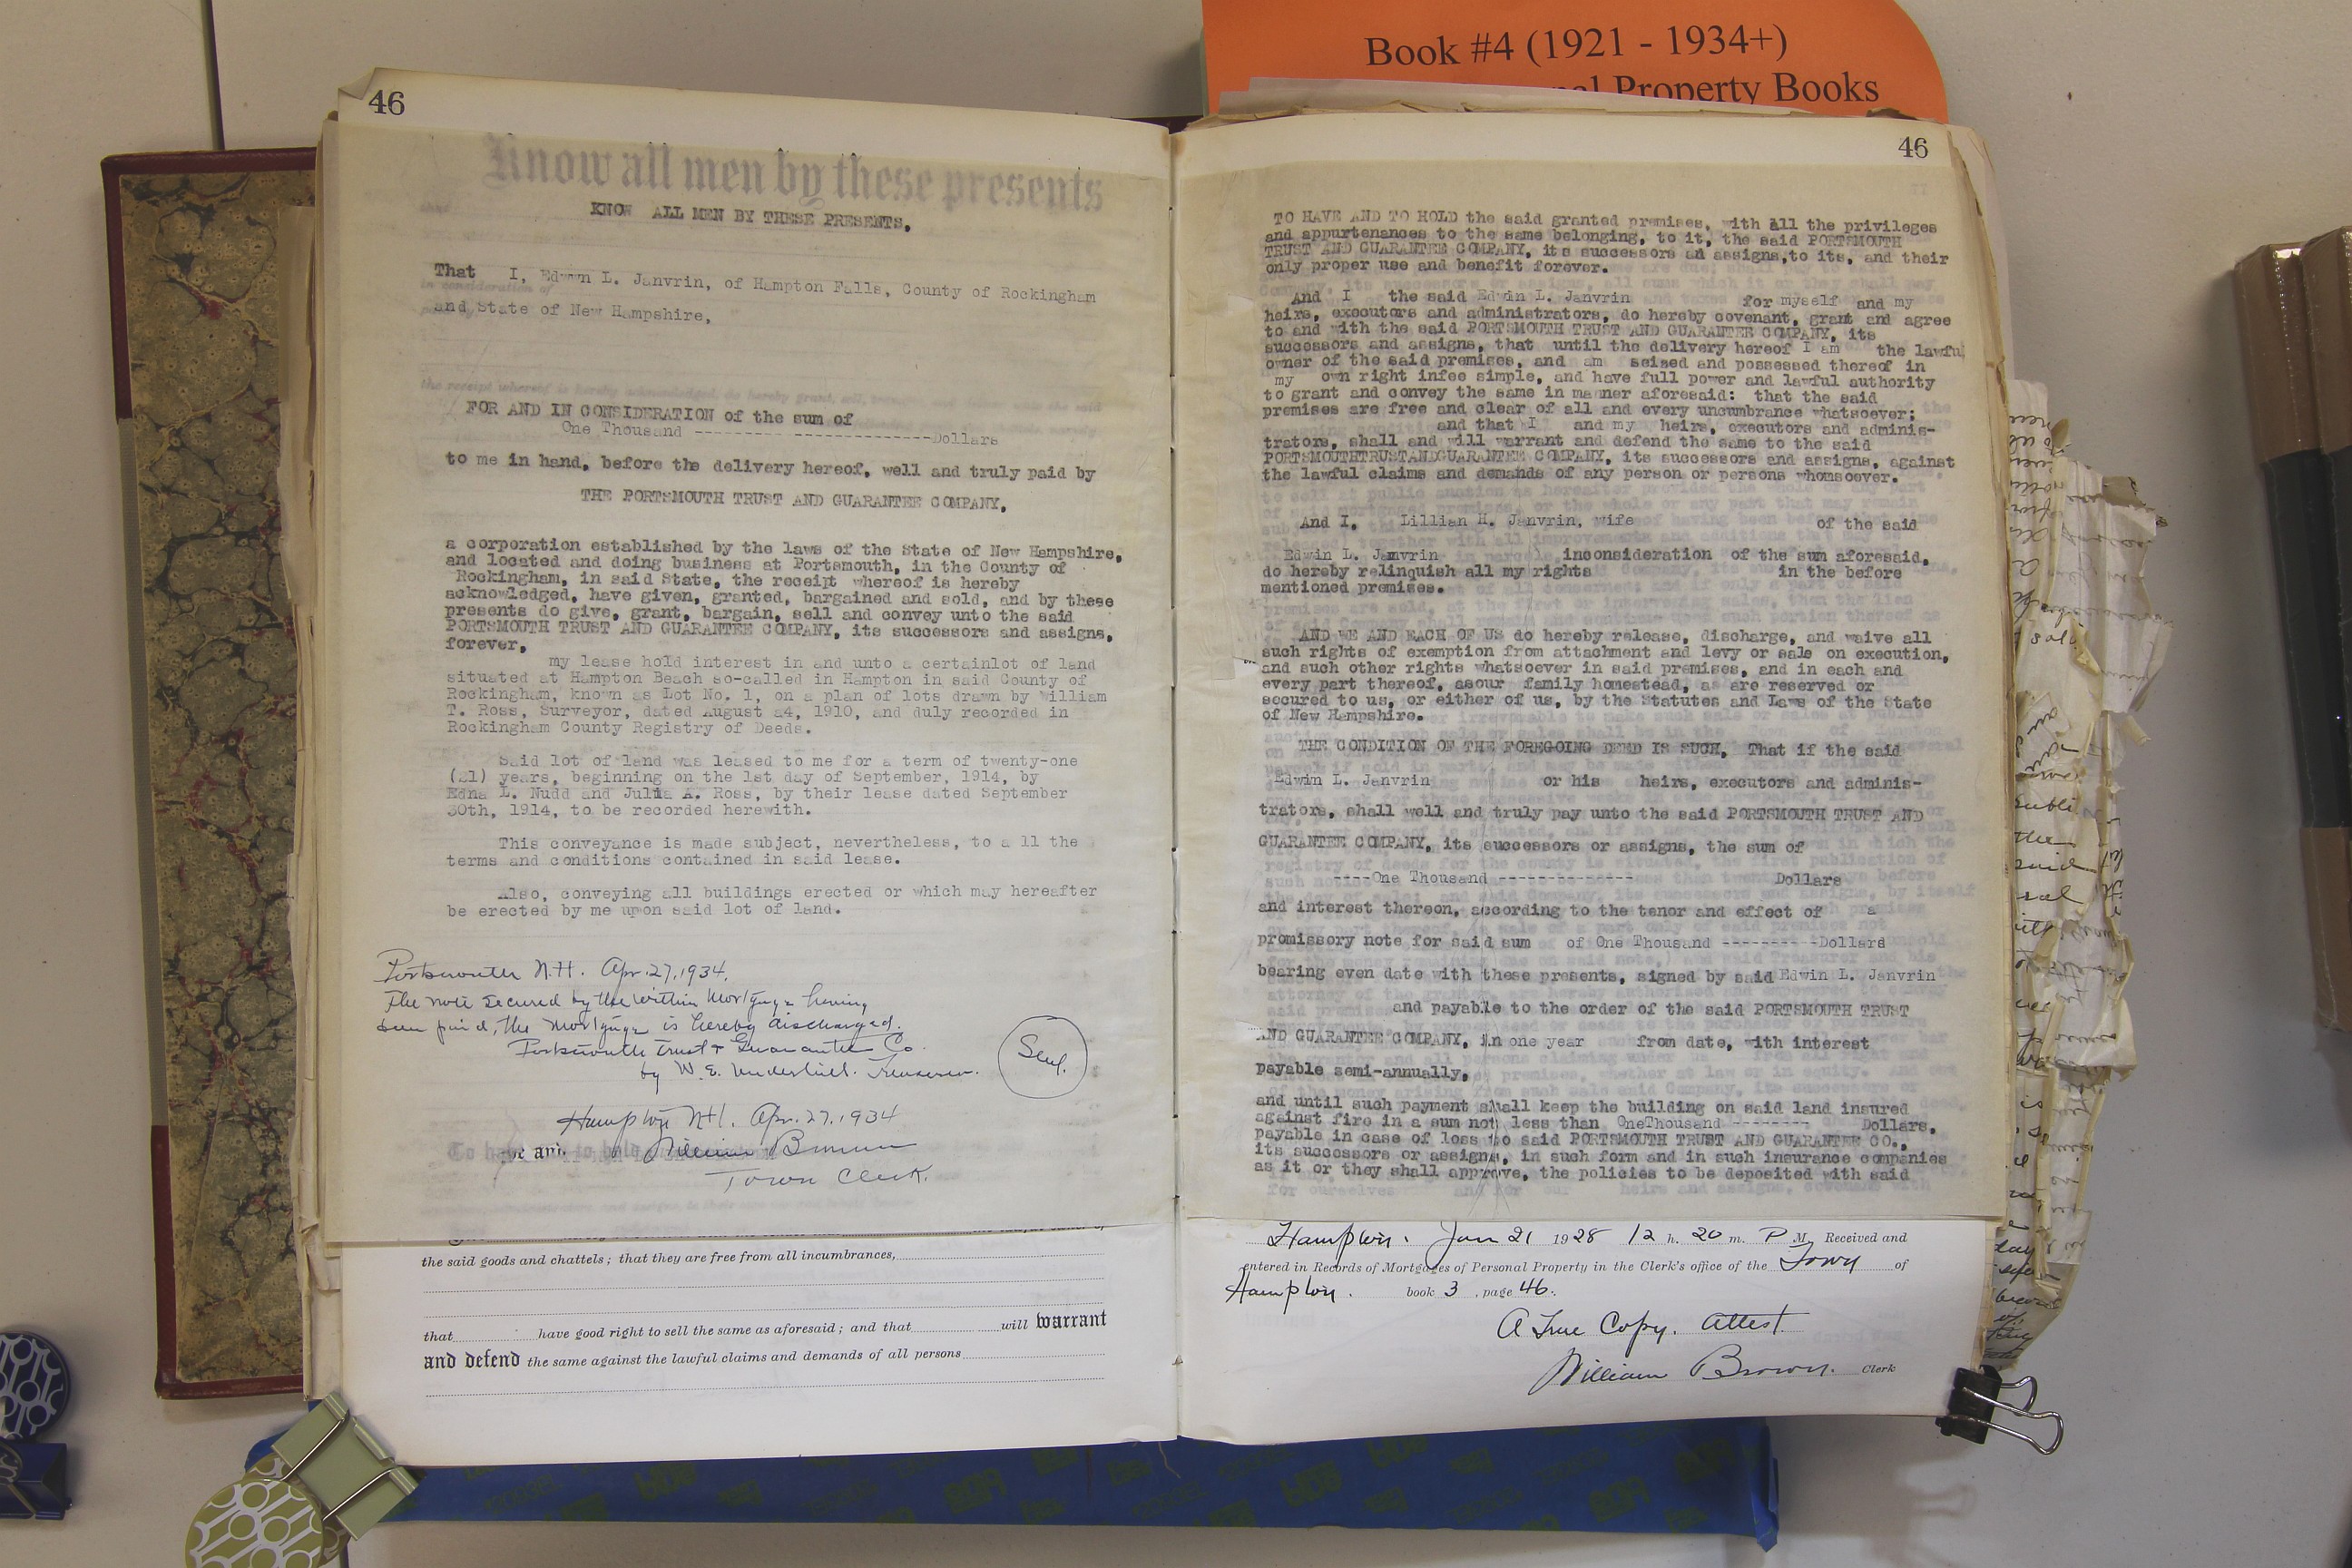 Book #4 (1921 - 1934+)
Property Books
46
Know all men by these presents
KNOW ALL MEN BY THESE PRESENTS,
That I, Edwin L. Janvrin, of Hampton Falls, County of Rockingham
and State of New Hampshire,
FOR AND IN CONSIDERATION of the sum of
One Thousand --------- ----------------------Dollars
to me in hand, before the delivery hereof, well and truly paid by
THE PORTSMOUTH TRUST AND GUARANTEE COMPANY,
a corporation established by the laws of the State of New Hampshire,
and located and doing business at Portsmouth, in the County of
Rockingham, in said State, the receipt whereof is hereby
acknowledged, have given, granted, bargained and sold, and by these
presents do give, grant, bargain, sell and convey unto the said
PORTSMOUTH TRUST AND GUARANTEE COMPANY, its successors and assigns,
forever,
my lease hold interest in and unto a certainlot of land
situated at Hampton Beach so-called in Hampton in said County of
Rockingham, known as Lot No. 1, on a plan of lots drawn by William
T. Ross, Surveyor, dated August 24, 1910, and duly recorded in
Rockingham County Registry of Deeds.
Said lot of land was leased to me for a term of twenty-one
(21) years, beginning on the 1st day of September, 1914, by
Edna L. Nudd and Julia A. Ross, by their lease dated September
30th, 1914, to be recorded herewith.
This conveyance is made subject, nevertheless, to a ll the
terms and conditions contained in said lease.
Also, conveying all buildings erected or which may hereafter
be erected by me upon said lot of land.
Portsmouth N.H. Apr. 27, 1934.
The note secured by the within Mortgage having
been paid, the mortgage is hereby discharged.
Portsmouth Trust & Guarantee Co.
by W. E. Underhill. Treasurer.
Seal.
Hampton N.H. Apr. 27, 1934
William Brown
Town Clerk.
the said goods and chattels; that they are free from all incumbrances,
that have good right to sell the same as aforesaid; and that will warrant
and defend the same against the lawful claims and demands of all persons
46
TO HAVE AND TO HOLD the said granted premises, with all the privileges
and appurtenances to the same belonging, to it, the said PORTSMOUTH
TRUST AND GUARANTEE COMPANY, its successors an assigns,to its, and their
only proper use and benefit forever.
And I the said Edwin L. Janvrin for myself and my
heirs, executors and administrators, do hereby covenant, grant and agree
to and with the said PORTSMOUTH TRUST AND GUARANTEE COMPANY, its
successors and assigns, that until the delivery hereof I am the lawful
owner of the said premises, and am seized and possessed thereof in
my own right infee simple, and have full power and lawful authority
to grant and convey the same in manner aforesaid: that the said
premises are free and clear of all and every uncumbrance whatsoever;
and that I and my heirs, executors and adminis-
trators, shall and will warrant and defend the same to the said
PORTSMOUTHTRUSTANDGUARANTEE COMPANY, its successors and assigns, against
the lawful claims and demands of any person or persons whomsoever.
And I, Lillian H. Janvrin, wife of the said
Edwin L. Janvrin inconsideration of the sum aforesaid,
do hereby relinquish all my rights in the before
mentioned premises.
AND WE AND EACH OF US do hereby release, discharge, and waive all
such rights of exemption from attachment and levy or sale on execution,
and such other rights whatsoever in said premises, and in each and
every part thereof, asour family homestead, as are reserved or
secured to us, or either of us, by the Statutes and Laws of the State
of New Hampshire.
THE CONDITION OF THE FOREGOING DEED IS SUCH, That if the said
Edwin L. Janvrin or his heirs, executors and adminis-
trators, shall well and truly pay unto the said PORTSMOUTH TRUST AND
GUARANTEE COMPANY, its successors or assigns, the sum of
----One Thousand ------------- Dollars
and interest thereon, according to the tenor and effect of a
promissory note for said sum of One Thousand ----------Dollars
bearing even date with these presents, signed by said Edwin L. Janvrin
and payable to the order of the said PORTSMOUTH TRUST
AND GUARANTEE COMPANY, in one year from date, with interest
payable semi-annually,
and until such payment shall keep the building on said land insured
against fire in a sum not less than OneThousand -------- Dollars,
payable in case of loss to said PORTSMOUTH TRUST AND GUARANTEE CO.,
its successors or assigns, in such form and in such insurance companies
as it or they shall approve, the policies to be deposited with said
Hampton. Jan 21 1928 12 h. 20 m. P M. Received and
entered in Records of Mortgages of Personal Property in the Clerk's office of the Town of
Hampton. book 3, page 46.
A True Copy. Attest.
William Brown. Clerk